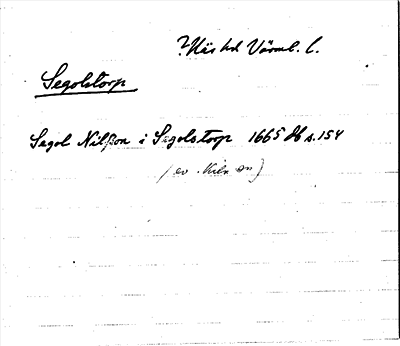 ?Näs hd Värml. l.
Segolstorp
Segol Nilsson i Segolstorp 1665 db s. 154
(ev. Kila sn)